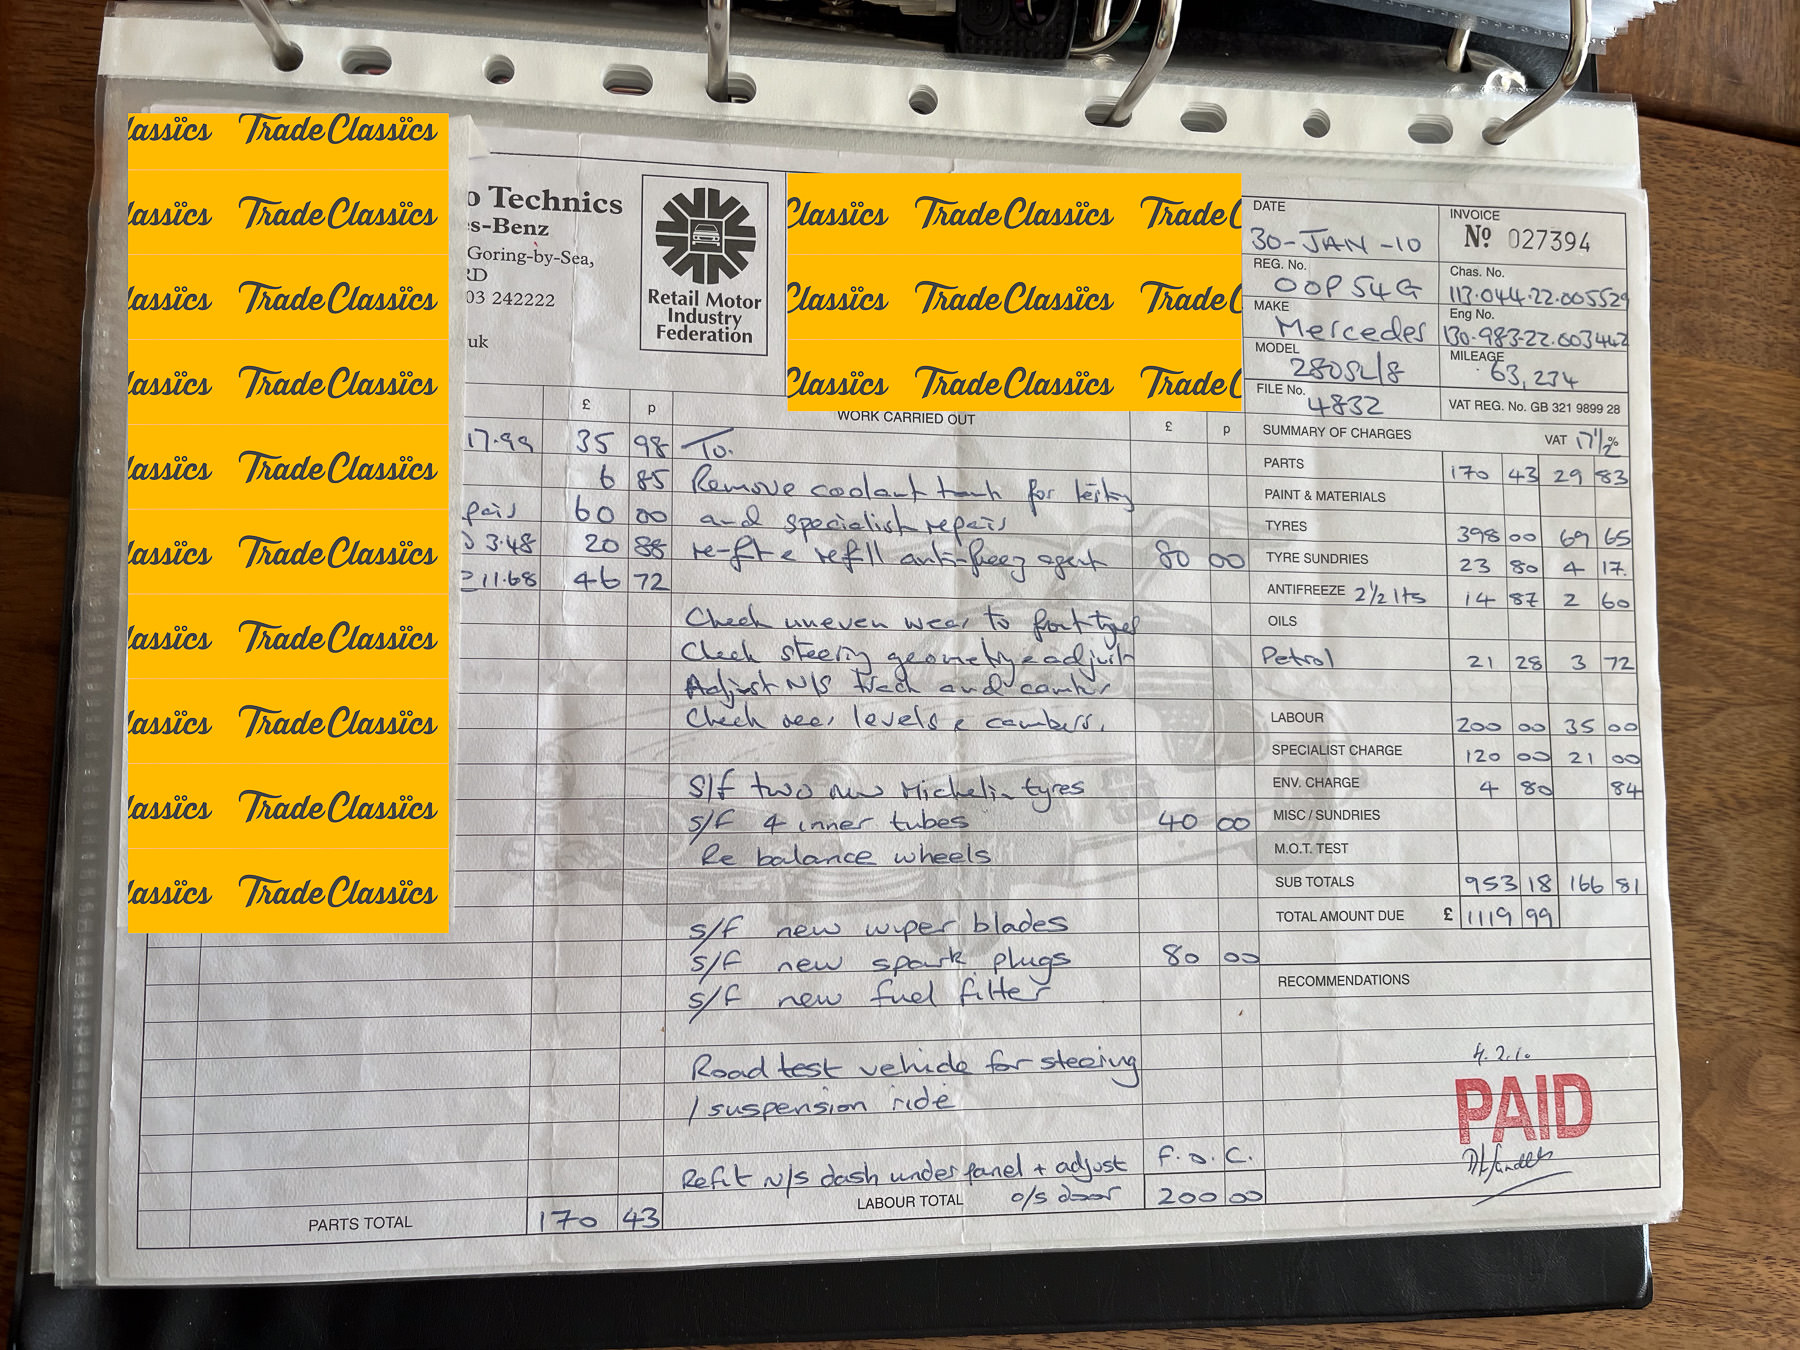 lassïcs TradeClassïcs
lassïcs TradeClassïcs
lassïcs TradeClassïcs
lassïcs TradeClassïcs
lassïcs TradeClassïcs
lassïcs TradeClassïcs
lassïcs TradeClassïcs
lassïcs TradeClassïcs
lassïcs TradeClassïcs
lassïcs TradeClassïcs
o Technics
s-Benz
Goring-by-Sea,
RD
03 242222
uk
Retail Motor
Industry
Federation
Classïcs TradeClassïcs TradeC
Classïcs TradeClassïcs TradeC
Classïcs TradeClassïcs TradeC
DATE 30-JAN-10
INVOICE Nº 027394
REG. No. OOP 54G
Chas. No. 113.044.22.005529
MAKE Mercedes
Eng No. 130.983.22.603442
MODEL 280SL/8
MILEAGE 63,234
FILE No. 4832
VAT REG. No. GB 321 9899 28
£ p WORK CARRIED OUT £ p
17.99 35 98
6 85
pair 60 00
3.48 20 88
11.68 46 72
PARTS TOTAL 170 43
To.
Remove coolant tank for testing
and specialist repair
re-fit & refill anti-freez agent 80 00
Check uneven wear to front tyres
Check steering geometry & adjust
Adjust N/S track and camber
Check rear levels & cambers.
S/f two new Michelin tyres
S/F 4 inner tubes 40 00
Re balance wheels
S/F new wiper blades
S/F new spark plugs 80 00
S/F new fuel filter
Road test vehicle for steering
/ suspension ride
Refit N/S dash under panel + adjust F.O.C.
o/s door
LABOUR TOTAL 200 00
SUMMARY OF CHARGES VAT 17½%
PARTS 170 43 29 83
PAINT & MATERIALS
TYRES 398 00 69 65
TYRE SUNDRIES 23 80 4 17
ANTIFREEZE 2½ lts 14 87 2 60
OILS
Petrol 21 28 3 72
LABOUR 200 00 35 00
SPECIALIST CHARGE 120 00 21 00
ENV. CHARGE 4 80 84
MISC / SUNDRIES
M.O.T. TEST
SUB TOTALS 953 18 166 81
TOTAL AMOUNT DUE £ 1119 99
RECOMMENDATIONS
4.2.10.
PAID